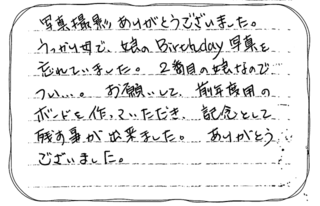 写真撮影ありがとうございました。
うっかり母で、娘のBirthday写真を
忘れていました。2番目の娘なので
つい…。お願いして、前年度用の
ボードを作っていただき、記念として
残す事が出来ました。ありがとう
ございました。